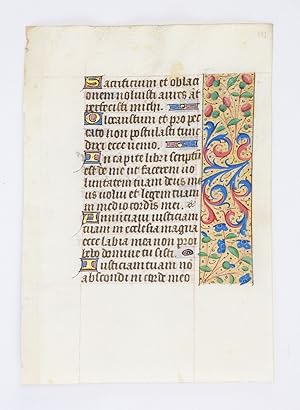 Sacrificium et oblaci
onem noluisti aures at
perfecisti michi.
Olocaustum et pro pec
cato non postulasti tunc
dixi ecce uenio.
In capite libri scriptū
est de me ut facerem uo
luntatem tuam deus me
us uolui et legem tuam
in medio cordis mei.
Annūciaui iusticiam
tuam in ecclesia magna
ecce labia mea non pro
hibebo domine tu scisti
Iusticiam tuam nō
abscondi in corde meo